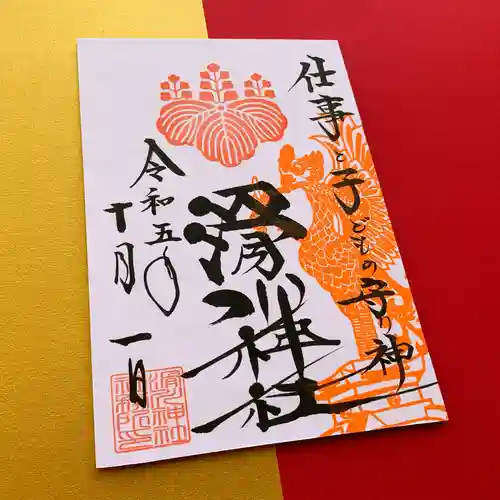 仕事と子どもの守り神
滑川神社
令和五年
十月一日